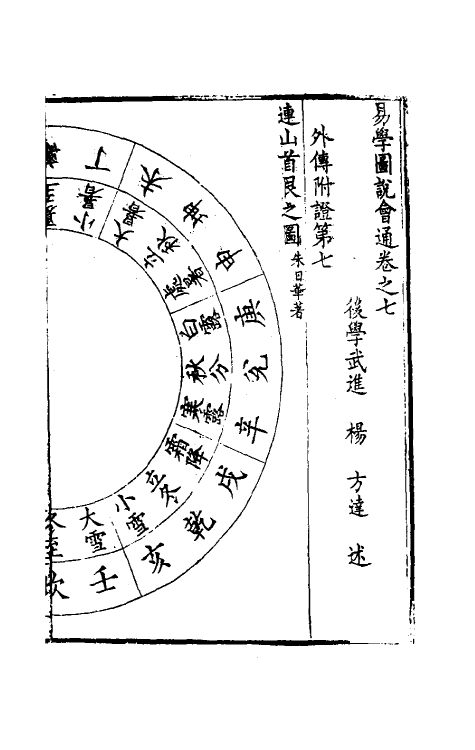 易學圖說會通卷之七
後學武進 楊 方達 述
外傳附證第七
連山首艮之圖 朱日華著
丁
未
坤
申
庚
兌
辛
戌
乾
亥
壬
坎
小暑
大暑
立秋
處暑
白露
秋分
寒露
霜降
立冬
小雪
大雪
冬至